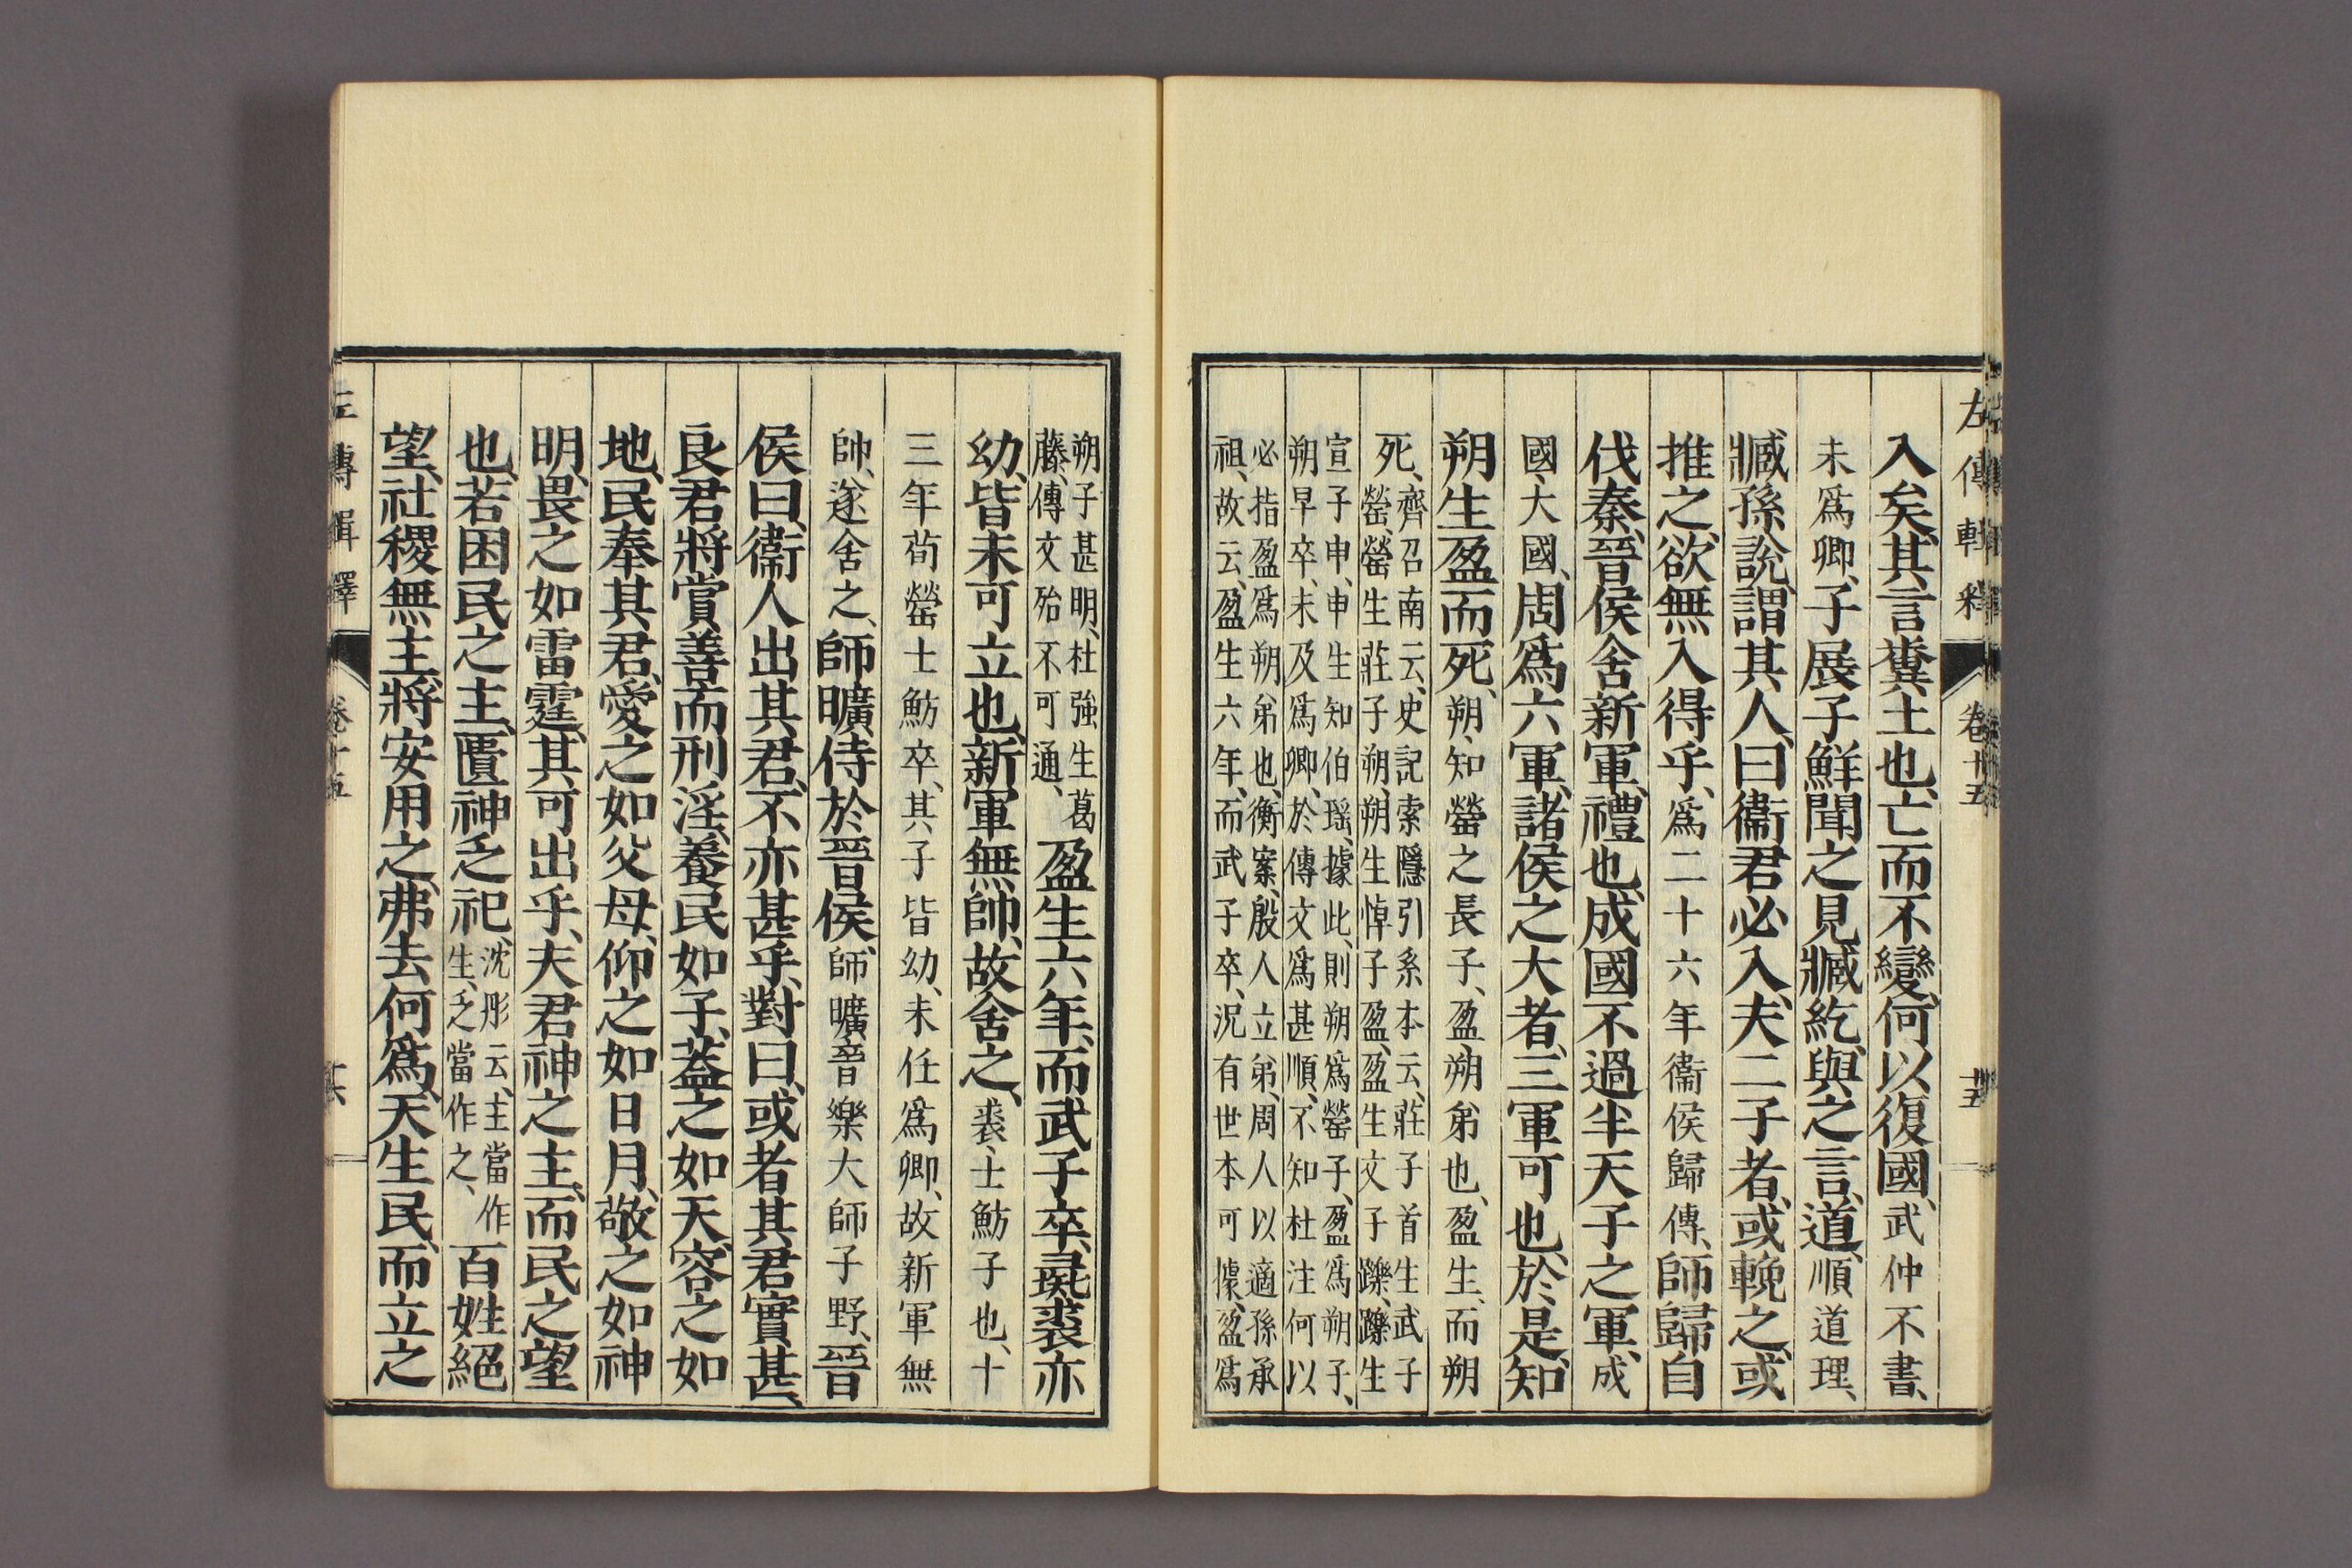 左傳輯釋 卷十五 十五
入矣、其言糞土也、亡而不變、何以復國、武仲不書、
未爲卿、子展子鮮聞之、見臧紇、與之言、道、順道理、
臧孫說、謂其人曰、衞君必入、夫二子者、或輓之、或
推之、欲無入得乎、爲二十六年衞侯歸傳、師歸自
伐秦、晉侯舍新軍、禮也、成國不過半天子之軍、成
國、大國、周爲六軍、諸侯之大者、三軍可也、於是、知
朔生盈而死、朔、知罃之長子、盈、朔弟也、盈生、而朔
死、齊召南云、史記索隱引系本云、莊子首生武子
罃、罃生莊子朔、朔生悼子盈、盈生文子躒、躒生
宣子申、申生知伯瑶、據此、則朔爲罃子、盈爲朔子、
朔早卒、未及爲卿、於傳文爲甚順、不知杜注何以
必指盈爲朔弟也、衡案、殷人立弟、周人以適孫承
祖、故云、盈生六年、而武子卒、況有世本可據、盈爲
朔子甚明、杜強生葛
藤、傳文殆不可通、盈生六年、而武子卒、彘裘亦
幼、皆未可立也、新軍無帥、故舍之、裘、士魴子也、十
三年荀罃士魴卒、其子皆幼、未任爲卿、故新軍無
帥、遂舍之、師曠侍於晉侯、師曠晉樂大師子野、晉
侯曰、衞人出其君、不亦甚乎、對曰、或者其君實甚、
良君將賞善而刑淫、養民如子、蓋之如天、容之如
地、民奉其君、愛之如父母、仰之如日月、敬之如神
明、畏之如雷霆、其可出乎、夫君神之主、而民之望
也、若困民之主、匱神乏祀、沈彤云、主當作
生、乏當作之、百姓絕
望、社稷無主、將安用之、弗去何爲、天生民、而立之
左傳輯釋 卷十五 十六